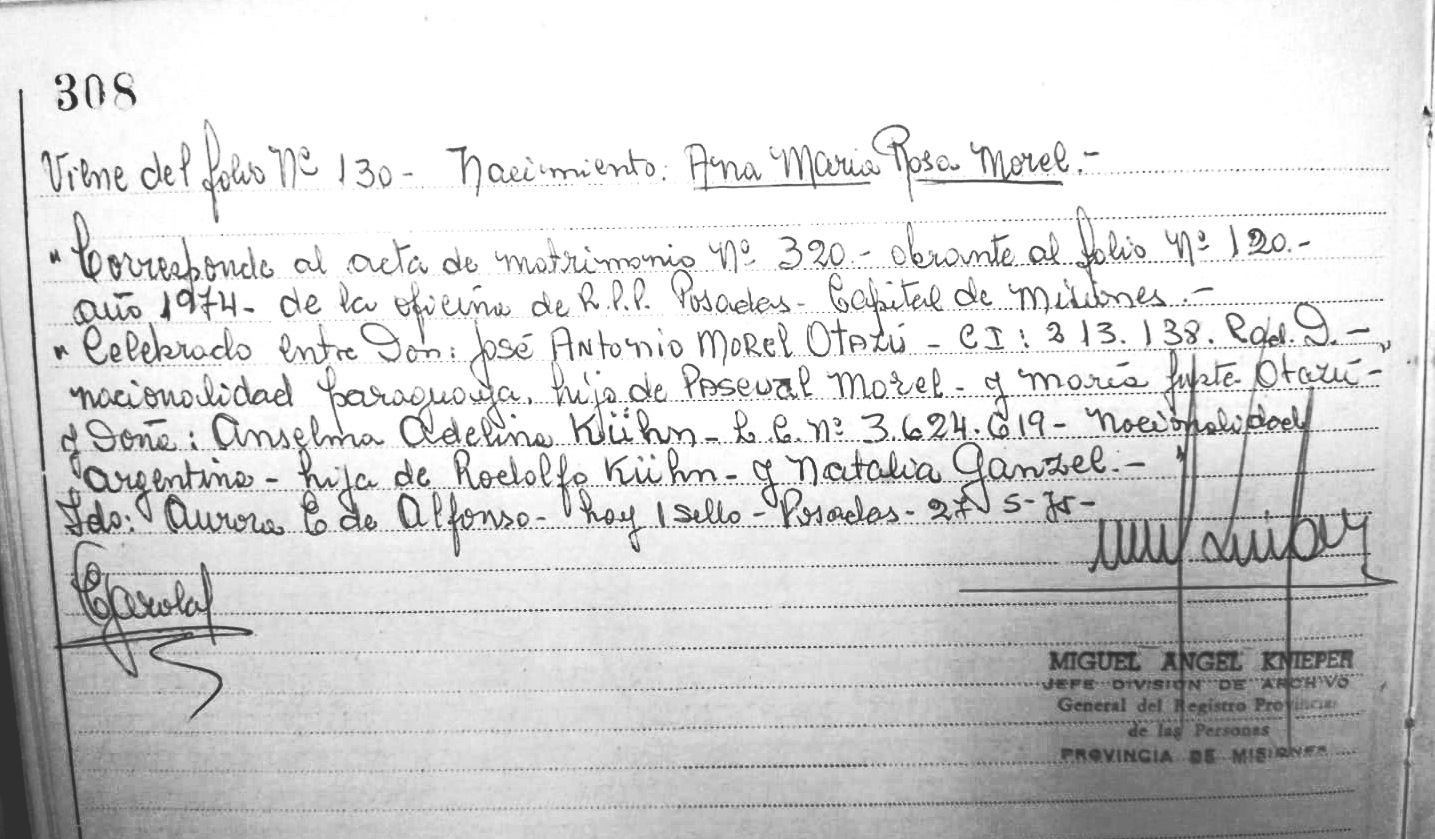 308
Viene del folio Nº 130 - Nacimiento: Ana Maria Rosa Morel.-
"Corresponde al acta de matrimonio Nº 320.- obrante al folio Nº 120.-
año 1974- de la oficina de R.P.P. Posadas - Capital de Misiones.-
"Celebrado entre Don: José Antonio Morel Otazú - CI: 313.138.
nacionalidad paraguaya, hijo de Pascual Morel - y María Otazú -"
y Doña: Anselma Adelina Kühn - L.C. nº 3.624.619 - Nacionalidad
argentina - hija de Rodolfo Kühn - y Natalia Ganzel.- "
Fdo: Aurora C de Alfonso - hay 1 sello - Posadas - 27-5-75-
MIGUEL ANGEL KNIEPER
JEFE DIVISION DE ARCHIVO
General del Registro Provincial
de las Personas
PROVINCIA DE MISIONES